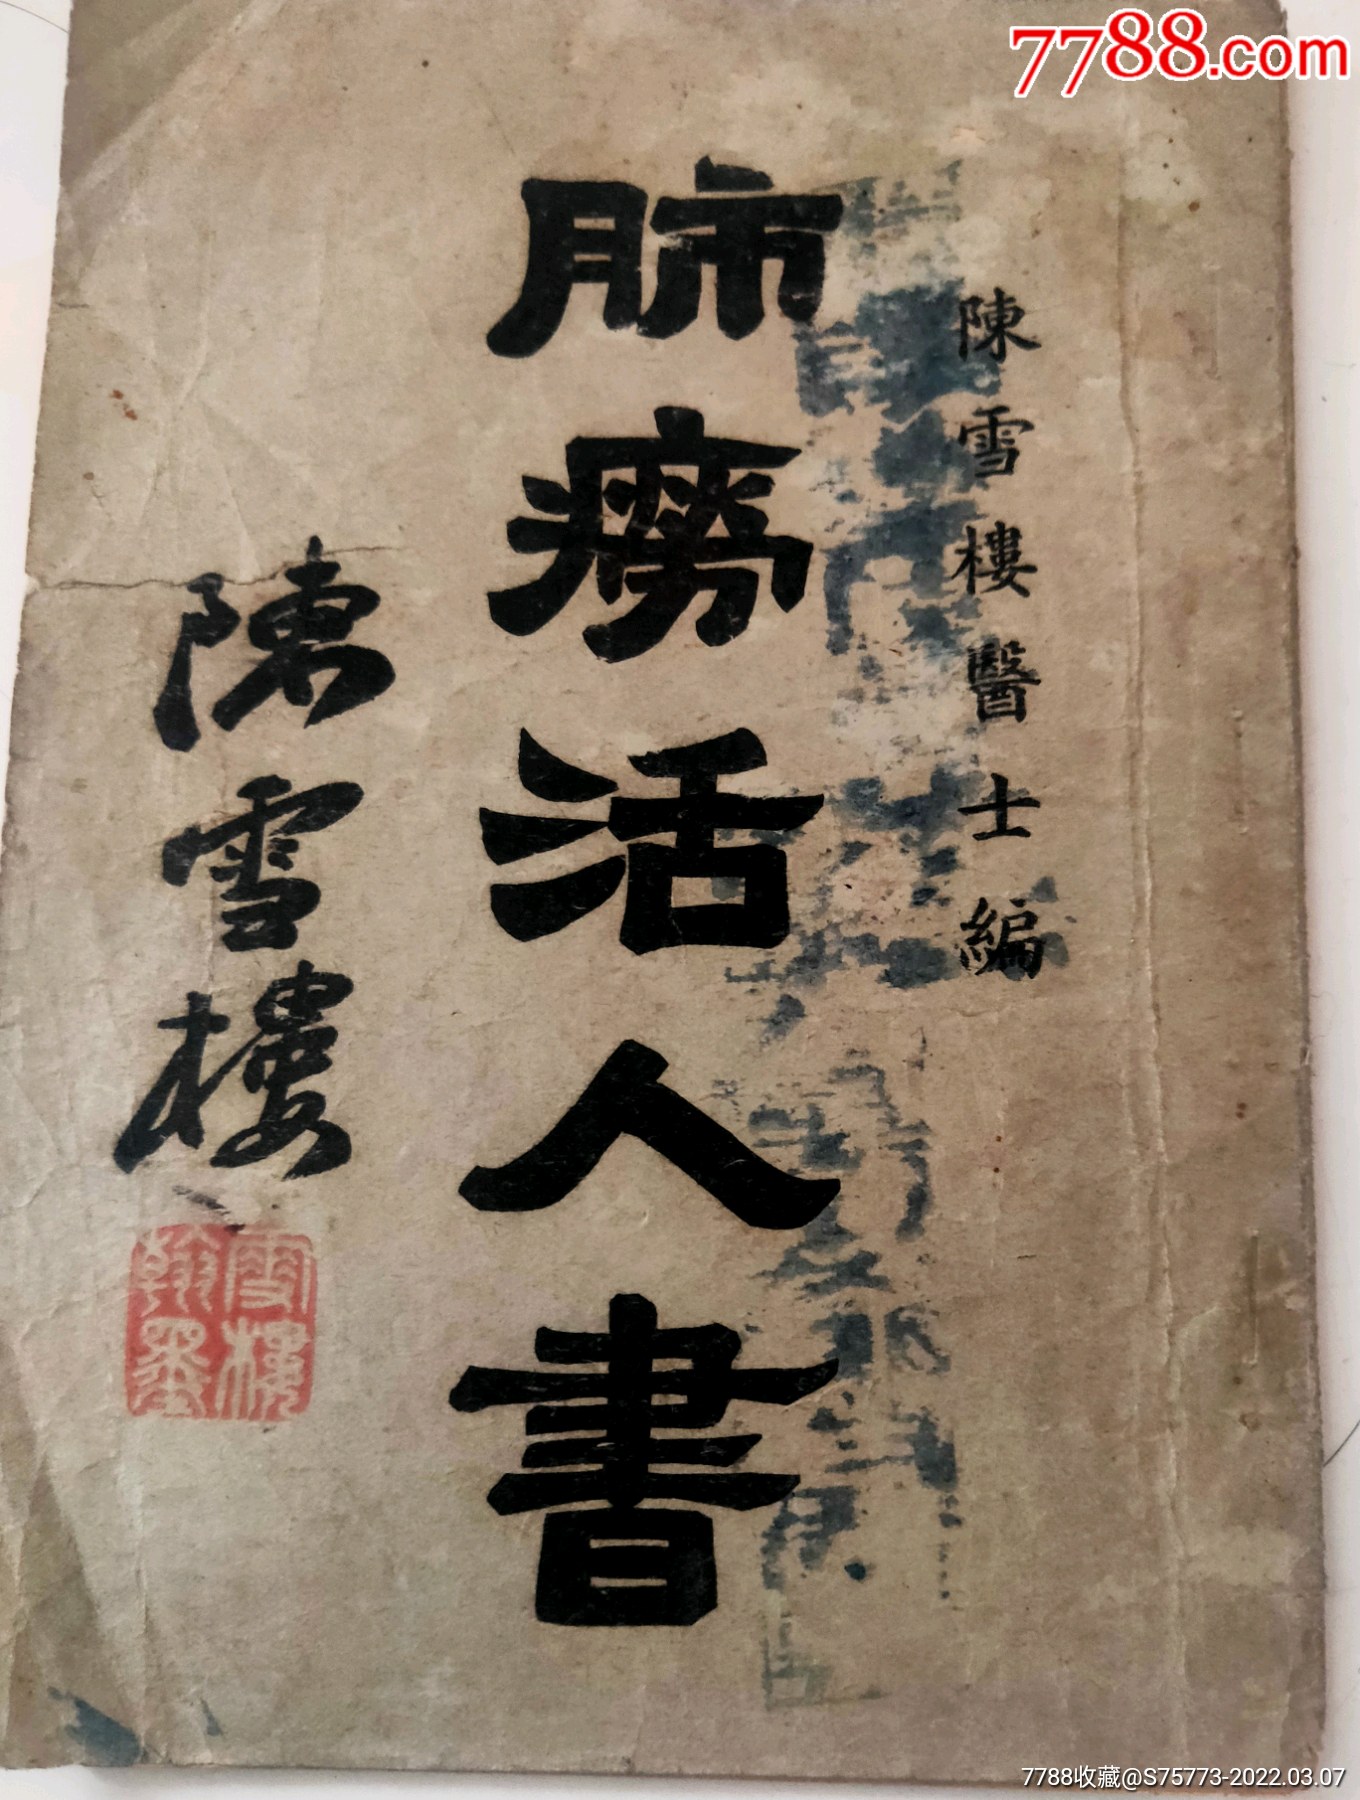 7788.com
陳雪樓醫士編
肺癆活人書
陳雪樓
雪樓
翰墨
7788收藏@S75773-2022.03.07